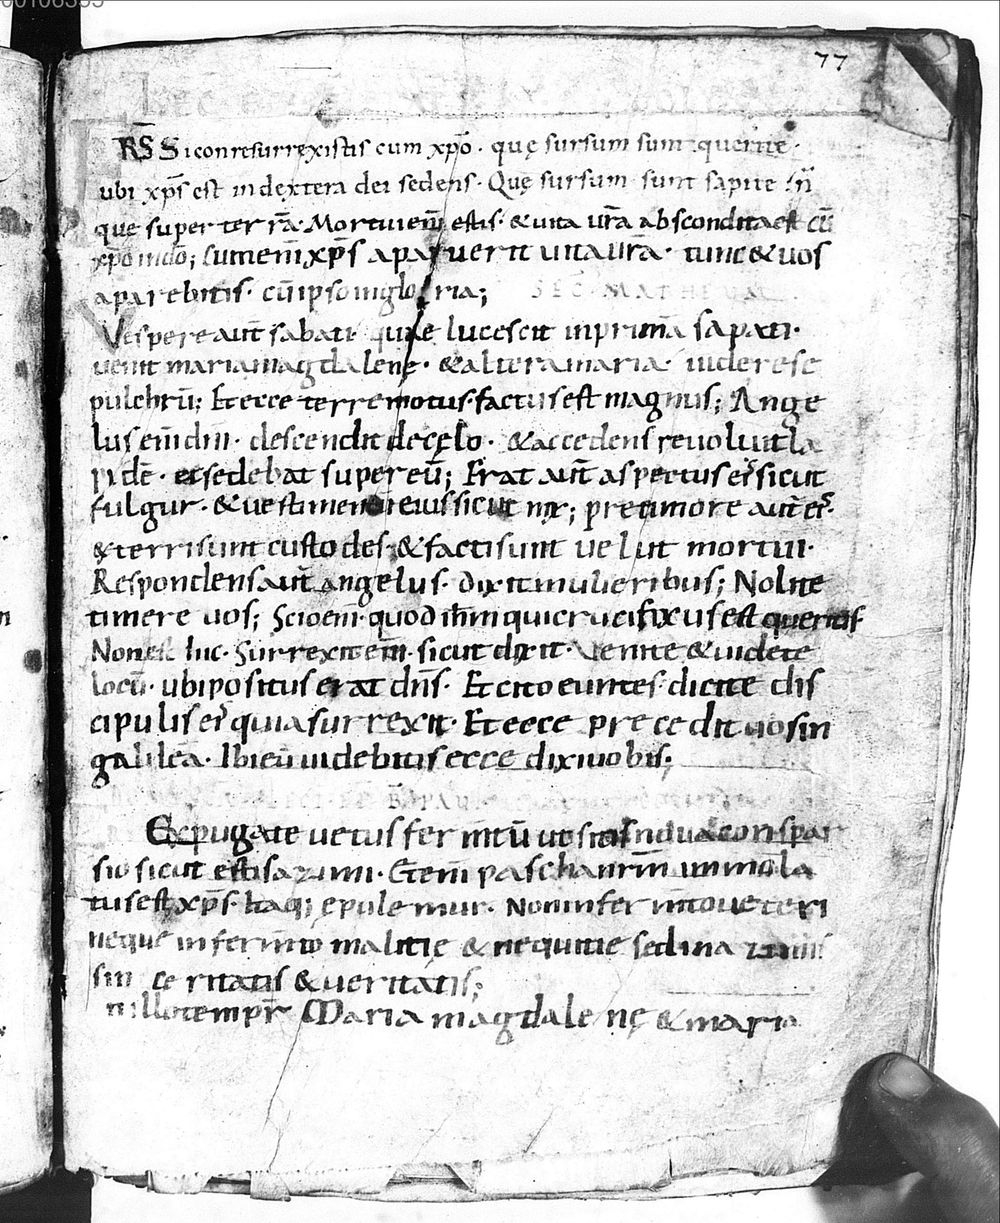 00106395
77
LEC
RS̄ Si conresurrexistis cum xp̄o · quę sursum sunt querite ·
ubi xp̄s est in dextera dei sedens · Quę sursum sunt sapite n̄
que super ter rā · Mortui eni̅ estis · & uita ur̄a abscondita est cū
xp̄o in dō ; Cum eni̅ xp̄s aparuerit uita ur̄a · tunc & uos
aparebitis · cū ipso in glo ria ;
SEC · MATHEUM
Vespere aut̄ sabati · quę lucescit in prima sapati ·
uenit maria magdalene · & altera maria · uidere se
pulchrū ; Et ecce terre motus factus est magnus ; Ange
lus eni̅ dn̄i · descendit de cęlo · & accedens reuoluit la
pidē · et sedebat super eū ; Erat aut̄ aspectus ei᷒ sicut
fulgur · & uestimentū eius sicut nix ; pre timore aut̄ ei᷒ ·
exterriti sunt custodes · & facti sunt uelut mortui ·
Respondens aut̄ angelus · dixit mulieribus ; Nolite
timere uos ; Scio eni̅ · quod ih̄m qui crucifixus est queritis
Non est hic · Surrexit eni̅ · sicut dixit · Venite & uidete
locū · ubi positus erat dn̄s · Et cito euntes · dicite dis
cipulis ei᷒ quia surrexit · Et ecce precedit uos in
galileā · Ibi eū uidebitis ecce dixi uobis ;
Expugate uetus fermtū ut sitis noua conspar
sio sicut estis azimi · Etenī pascha nr̄m immola
tus est xp̄s · Itaq; epulemur · Non in fermto ueteri
neque in fermto malitię & nequitie sed in azimis
sin ceritatis & ueritatis ;
n illo tempr̄ Maria magdalenę & maria